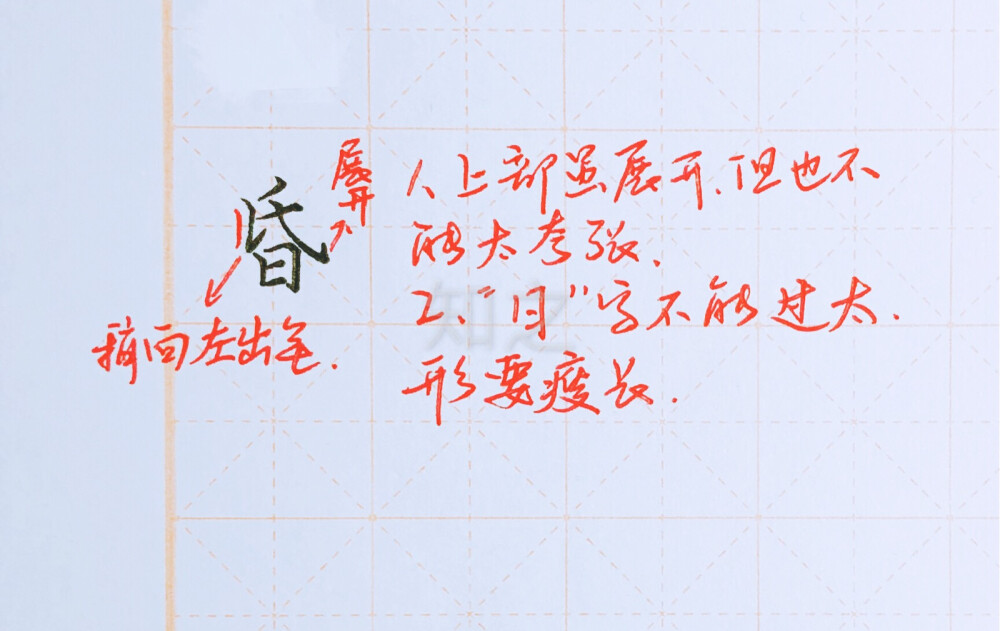 昏
展开
稍向左出车.
1、上部虽展开,但也不
能太夸张、
2、"日"字不能过大.
形要瘦长.
知之